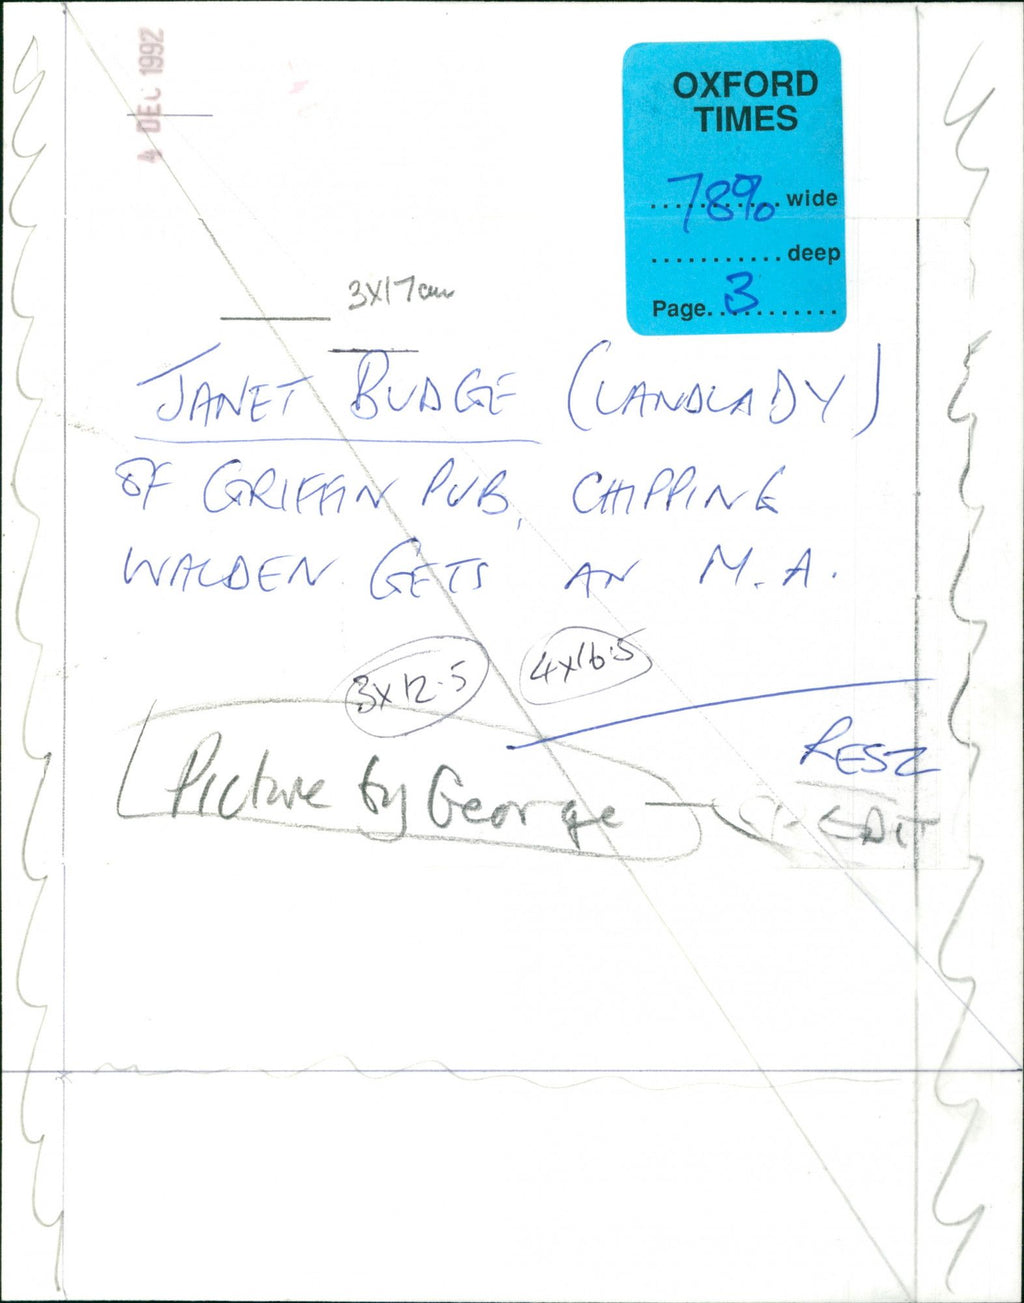 4 DEC 1992
OXFORD
TIMES
78% wide
deep
Page 3
3x17cm
JANET BUDGE (LANDLADY)
OF GRIFFIN PUB, CHIPPING
WALDEN GETS AN M.A.
3x12.5
4x16.5
Picture by George
CREDIT